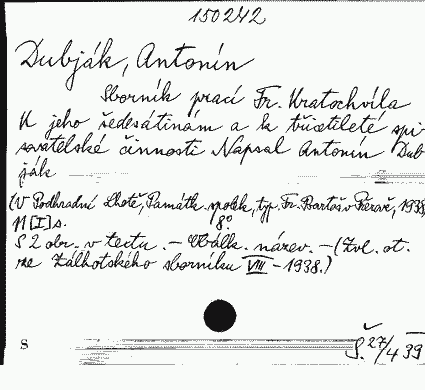 150242
Dubják, Antonín
Sborník prací Fr. Kratochvíla
K jeho šedesátinám a k třicetileté spi-
sovatelské činnosti Napsal Antonín Dub-
ják
(V Podhradní Lhotě, Památk. spolek, typ. Fr. Bartoš v Přerově, 1938,
11 [I] s. 8°
S 2 obr. v textu. – Obálk. název. – (Zvl. ot.
ze Záhorského sborníku VIII – 1938.)
S
Š. 27/4 39